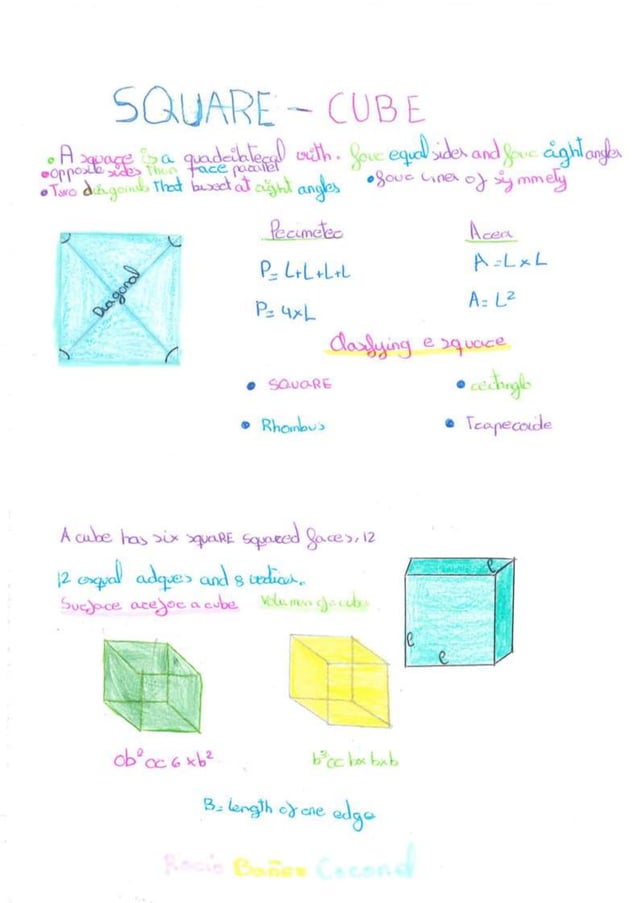 SQUARE - CUBE
• A square is a quadrilateral with. four equal sides and four right angles
• opposite sides face parallel
• Two diagonals That bisect at right angles • four lines of symmety
Diagonal
Perimeter
P= L+L+L+L
P= 4xL
Area
A = L x L
A = L²
Clasifying e square
• SQUARE
• rectangle
• Rhombus
• Traperoide
A cube has six square squared faces, 12
12 and 8
Surface are for a cube
Volumen of a cube
e
e
e
6 x b²
b³ or b x b x b
B= Length of one edge
Rocío Bañez